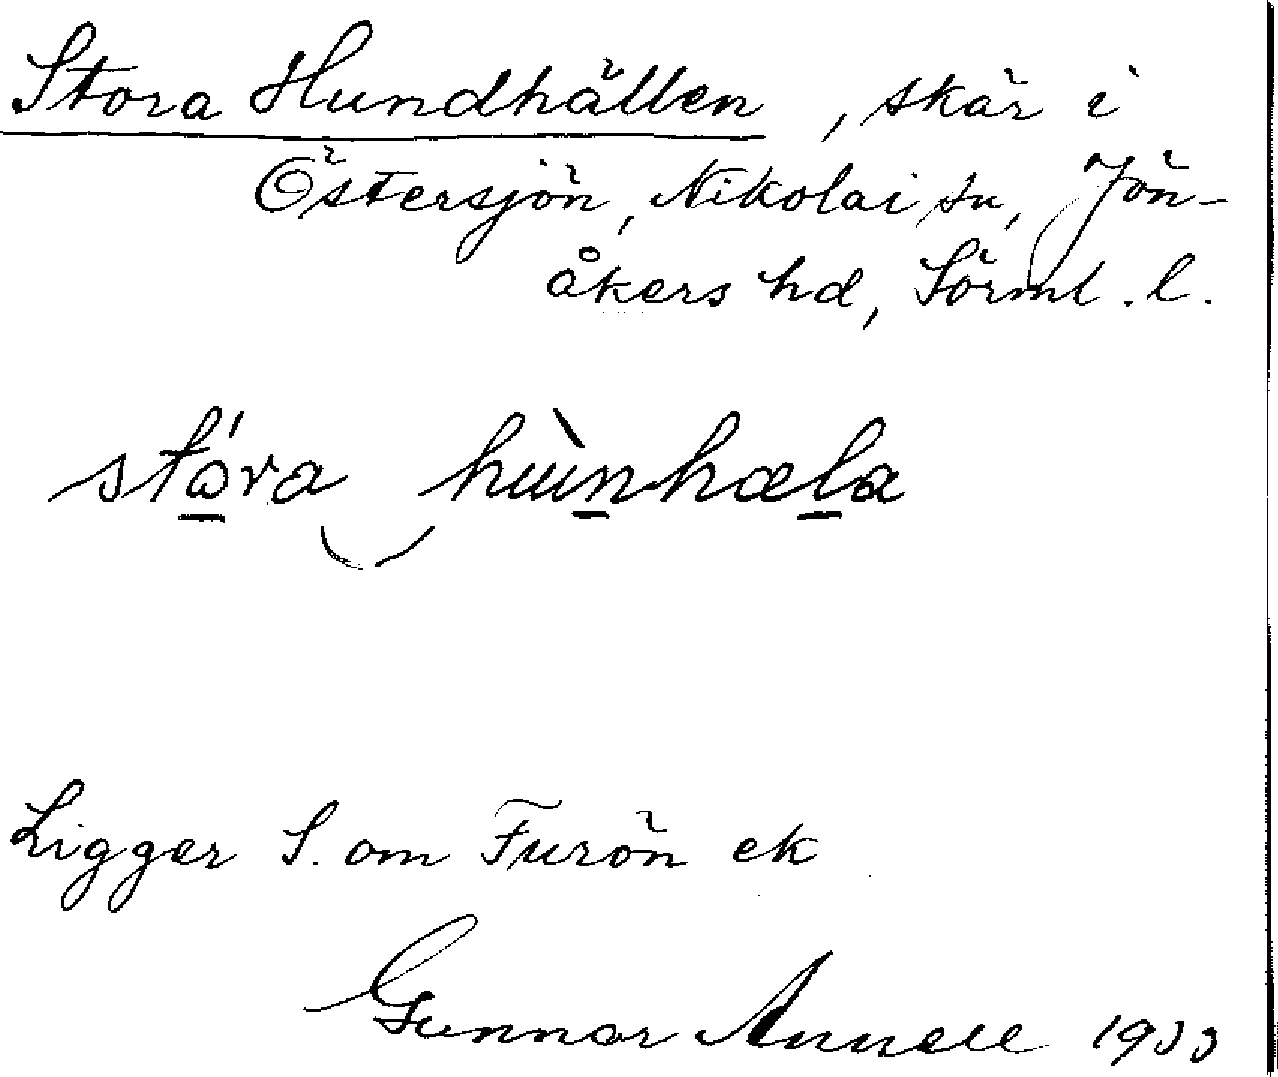 Stora Hundhällen, skär i
Östersjön, Nikolai sn, Jön-
åkers hd, Sörml. l.
stó̱ra hùṉhæḻa
Ligger S. om Furön ek
Gunnar Annell 1933